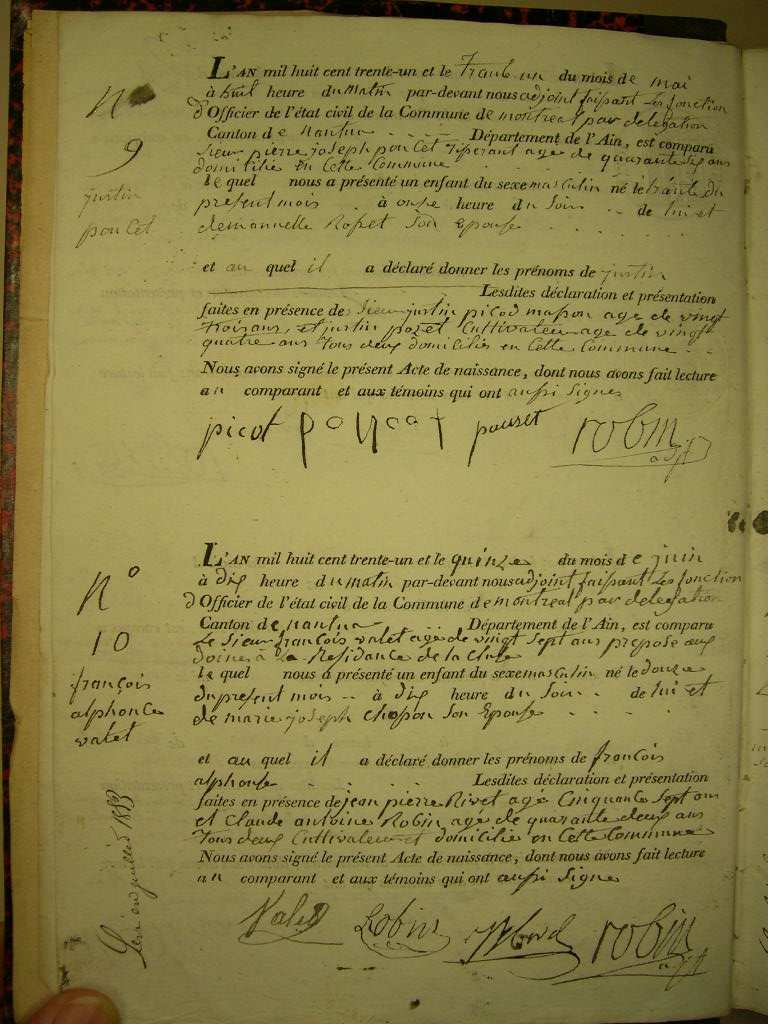 N°
9
justin
poncet
L'AN mil huit cent trente-un et le trente un du mois de mai
à huit heure du matin par-devant nous adjoint faisant les fonction
d'Officier de l'état civil de la Commune de montreal par delegation
Canton de nantua Département de l'Ain, est comparu
sieur pierre joseph poncet tisserant agé de quarante six ans
domiliés en Cette Commune
le quel nous a présenté un enfant du sexe masculin né le trante du
present mois à onse heure du soir de lui et
demanuelle Rosset son Epouse
et au quel il a déclaré donner les prénoms de justin
Lesdites déclaration et présentation
faites en présence de sieur justin picod masson age de vingt
trois ans, et justin pozet Cultivateur age de vingt
quatre ans tous deux domiciliés en Cette Commune
Nous avons signé le présent Acte de naissance, dont nous avons fait lecture
au comparant et aux témoins qui ont aussi signes
picot poncet pouzet robin
adjt
N°
10
françois
alphonce
valet
L'AN mil huit cent trente-un et le quinze du mois de juin
à dix heure du matin par-devant nous adjoint faisant les fonction
d'Officier de l'état civil de la Commune de montreal par delegation
Canton de nantua Département de l'Ain, est comparu
Le sieur françois valet age de vingt sept ans prepose aux
doines à la Residance de la Cluse
le quel nous a présenté un enfant du sexe masculin né le douze
du present mois à dix heure du soir de lui et
de marie joseph chapon son Epouse
et au quel il a déclaré donner les prénoms de francois
alphonse Lesdites déclaration et présentation
faites en présence de jean pierre Rivet agé Cinquante sept ans
et Claude antoine Robin age de quarante deux ans
tous deux Cultivateur et domicilié en Cette Commune
Nous avons signé le présent Acte de naissance, dont nous avons fait lecture
au comparant et aux témoins qui ont aussi signe
Valet Robin robin
adjt
en juillet 1853